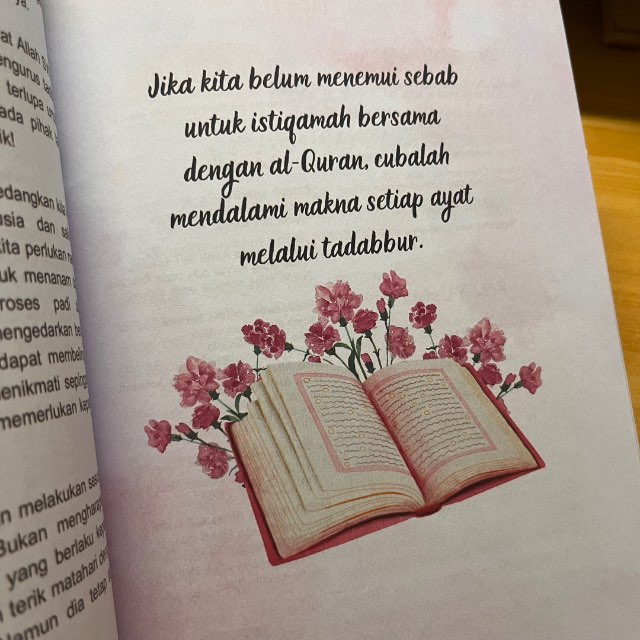 at Allah
terlupa
ada pihak
edangkan kita
usia dan
kita perlukan
uk menanam
roses padi
mengedarkan
dapat
menikmati
memerlukan
n melakukan
Bukan
yang berlaku
terik matahari
Namun dia tetap
Jika kita belum menemui sebab
untuk istiqamah bersama
dengan al-Quran, cubalah
mendalami makna setiap ayat
melalui tadabbur.